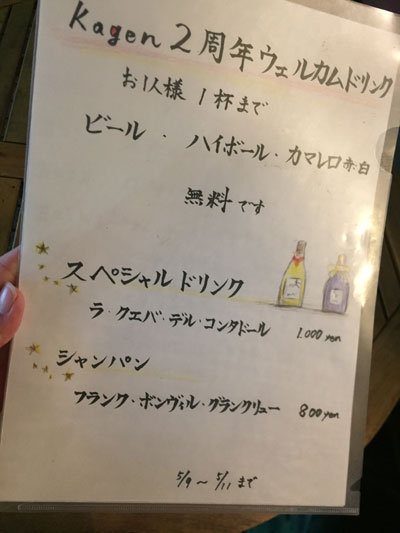 Kagen 2周年ウェルカムドリンク
お1人様 1杯まで
ビール ・ ハイボール・カマレロ赤・白
無料です
スペシャルドリンク
ラ・クエバ・デル・コンタドール 1,000 yen
シャンパン
フランク・ボンヴィル・グランクリュー 800 yen
5/9 〜 5/11 まで